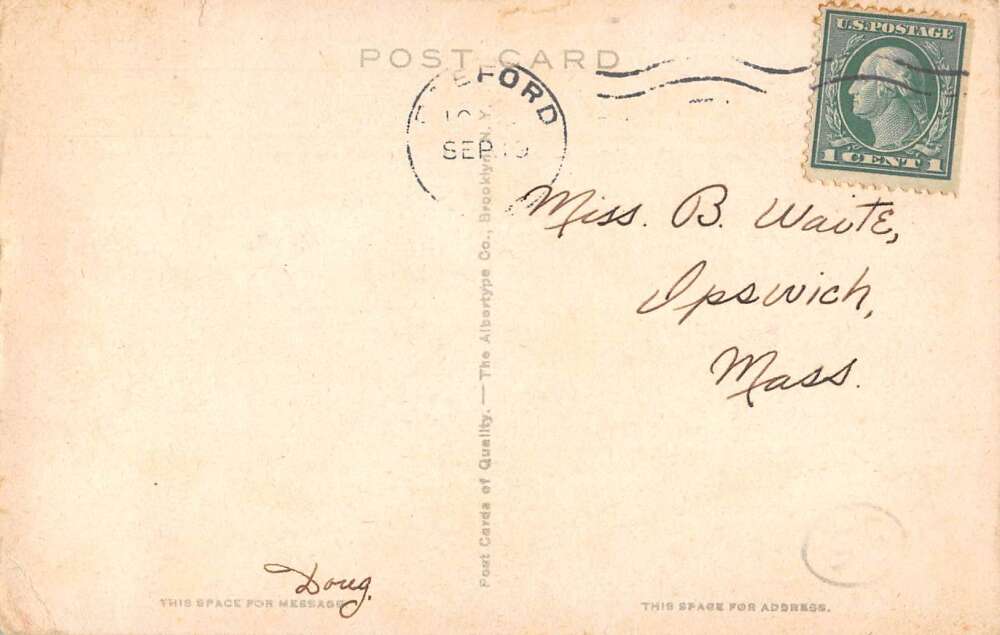 POST CARD
U.S.POSTAGE
1 CENT 1
SEP 19
Miss. B. Waite,
Ipswich,
Mass.
Post Cards of Quality. — The Albertype Co., Brooklyn, N.Y.
Doug.
THIS SPACE FOR MESSAGE
THIS SPACE FOR ADDRESS.